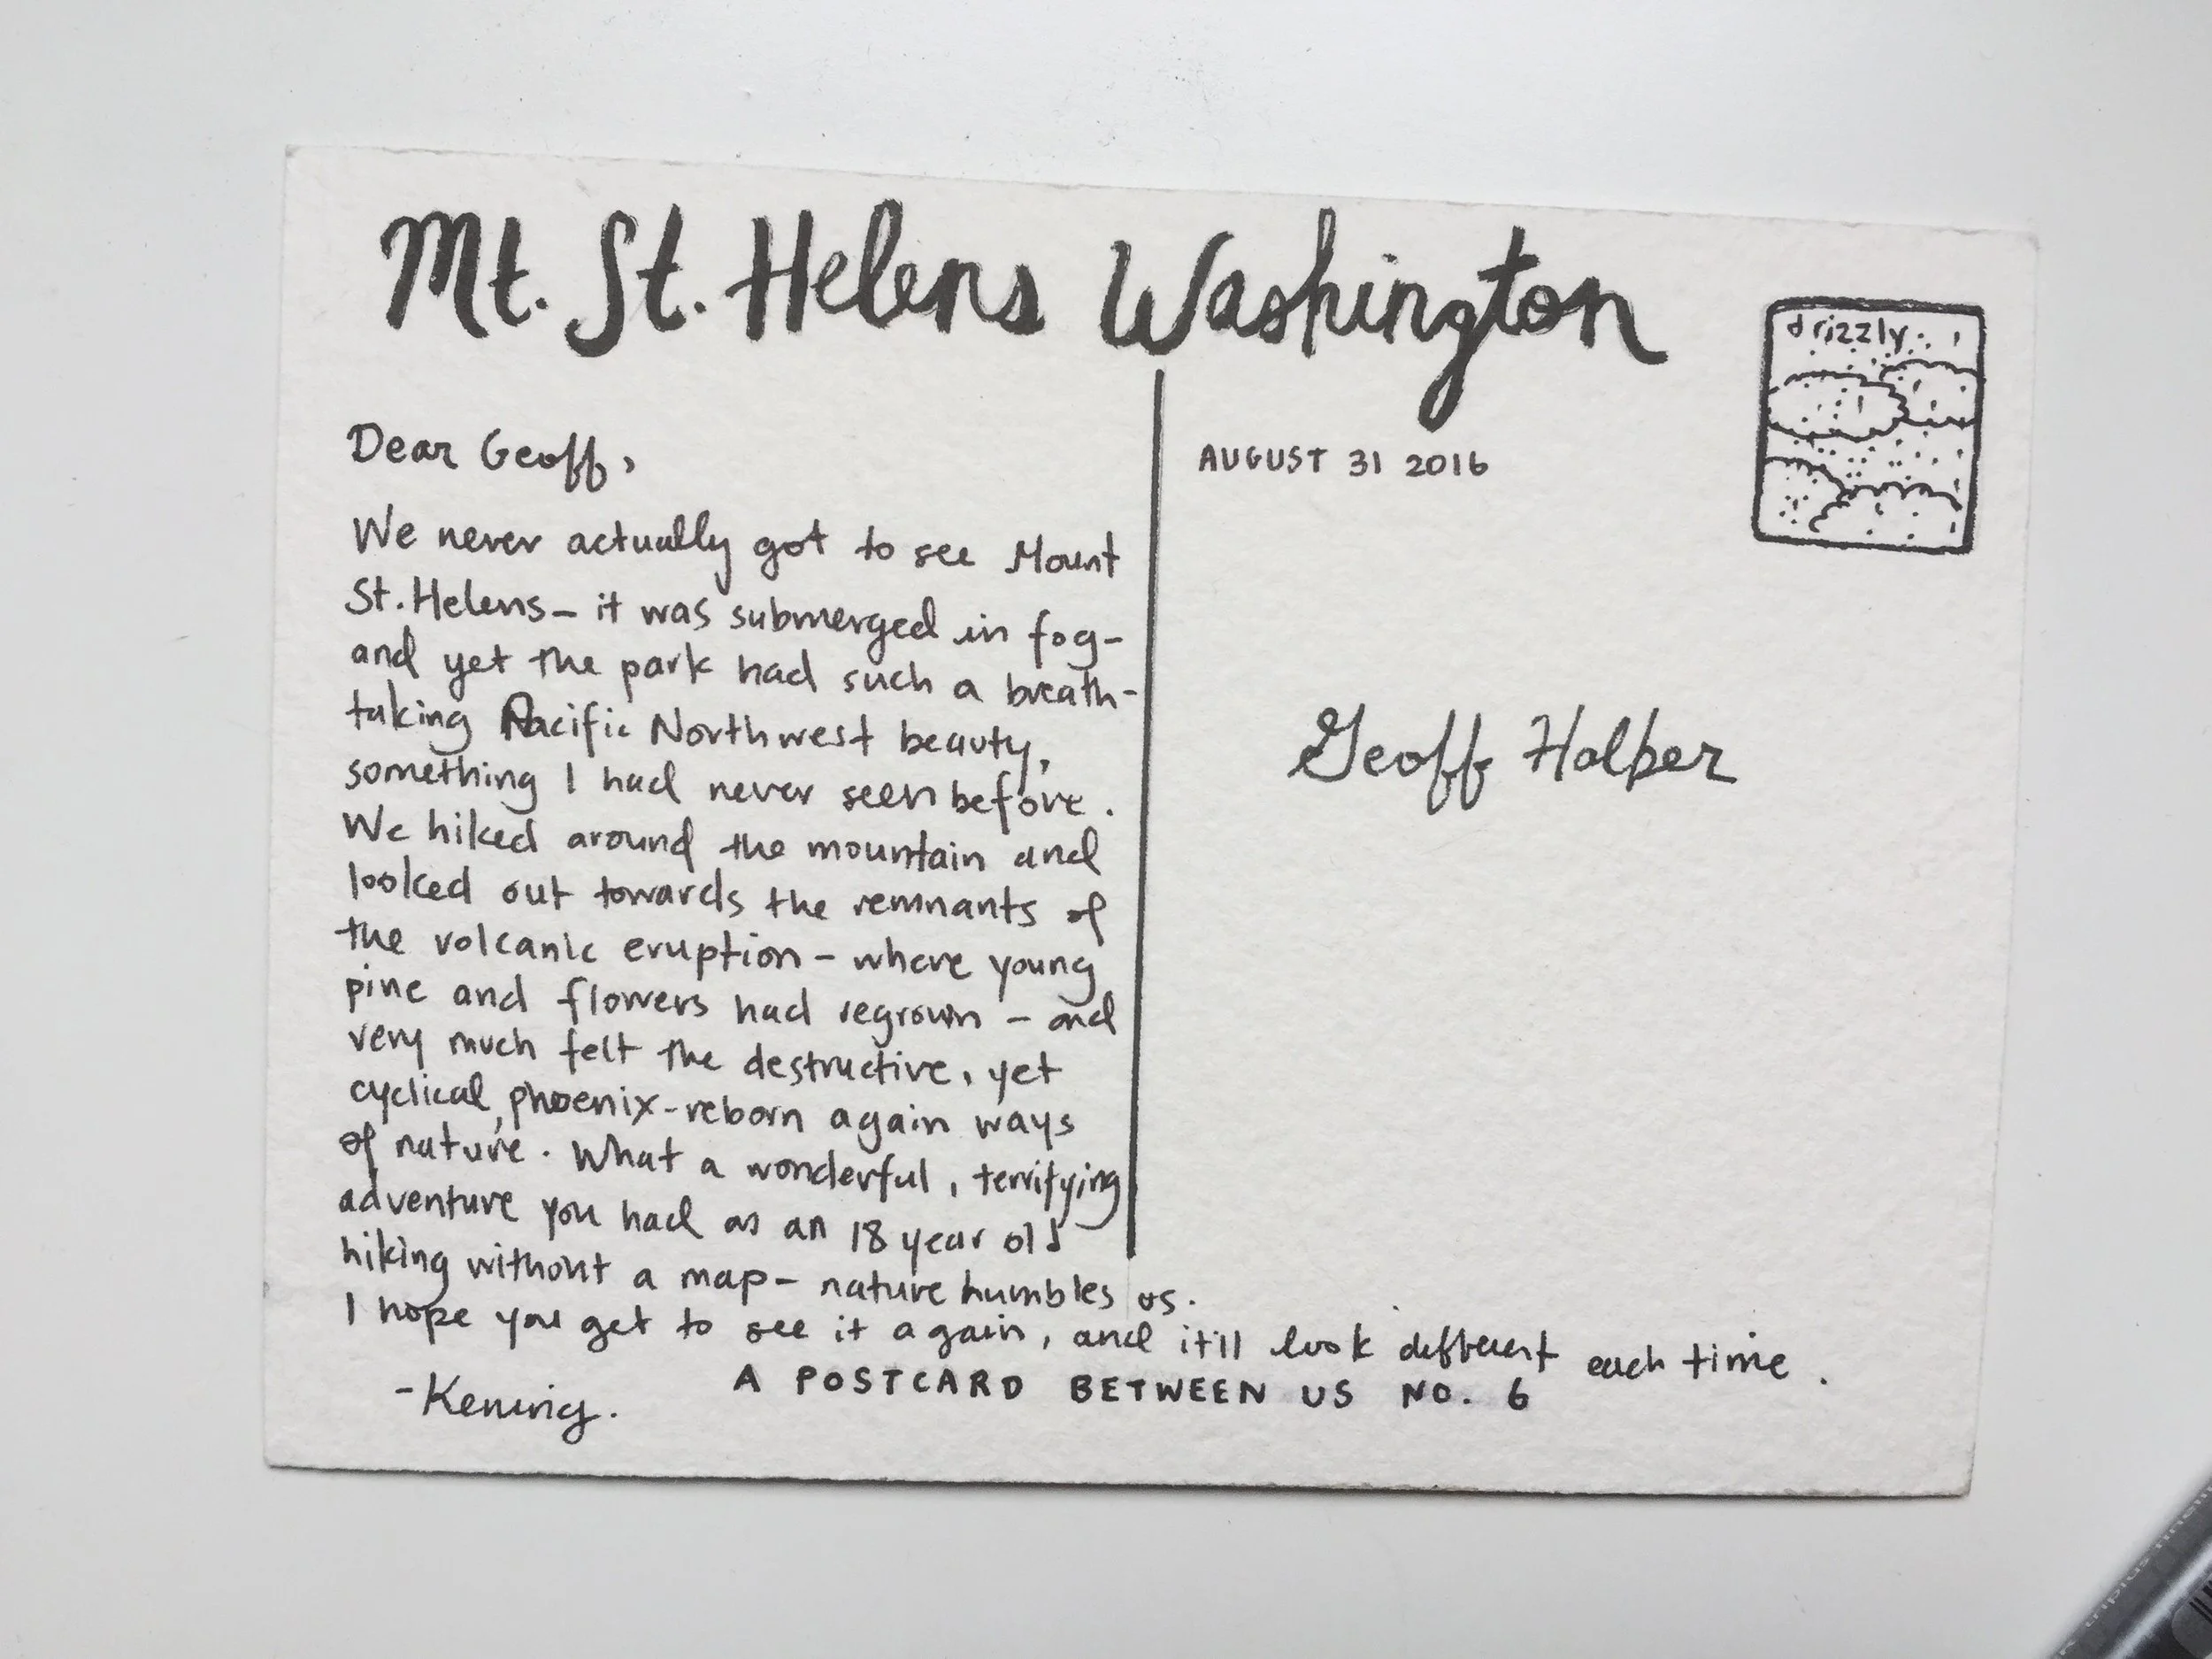 Mt. St. Helens Washington
drizzly
Dear Geoff,
We never actually got to see Mount
St. Helens - it was submerged in fog -
and yet the park had such a breath-
taking Pacific Northwest beauty,
something I had never seen before.
We hiked around the mountain and
looked out towards the remnants of
the volcanic eruption - where young
pine and flowers had regrown - and
very much felt the destructive, yet
cyclical, phoenix-reborn again ways
of nature. What a wonderful, terrifying
adventure you had as an 18 year old
hiking without a map - nature humbles us.
I hope you get to see it again, and it'll look different each time.
- Kening.
AUGUST 31 2016
Geoff Halber
A POSTCARD BETWEEN US NO. 6
triplus